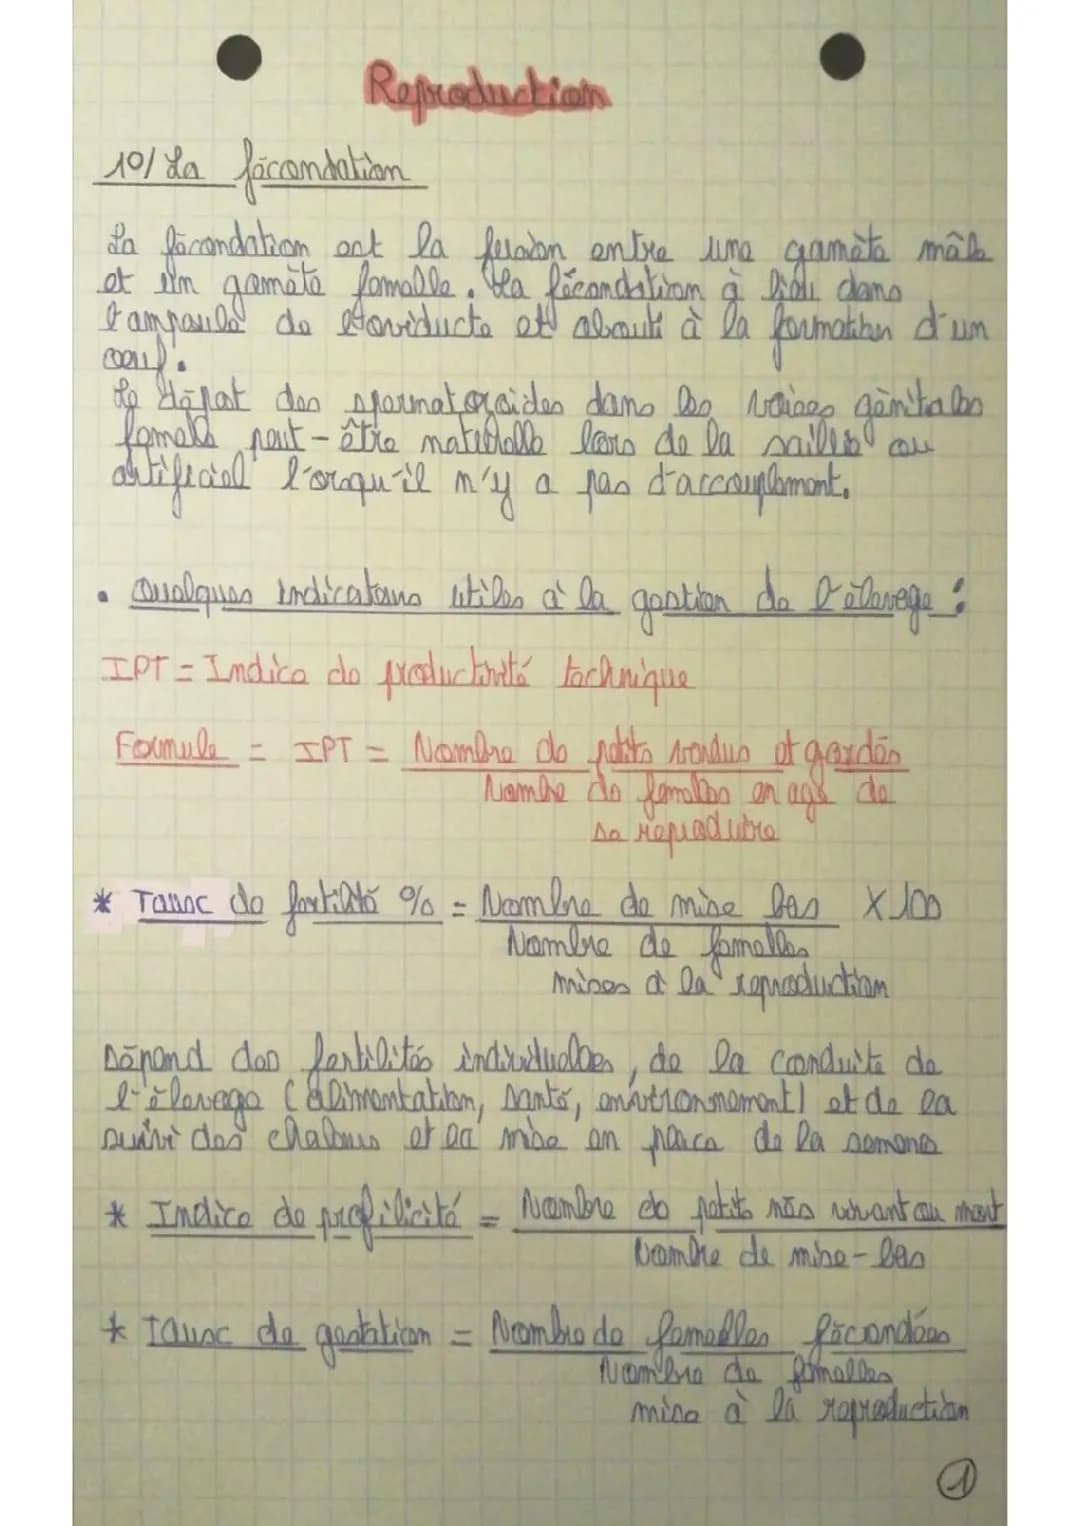 Reproduction
10/ La fécondation
La fécondation est la fusion entre une gamète mâle
et un gamète femelle. La fécondation à lieu dans
l'ampoule de l'oviducte et abouti à la formation d'un
oeuf.
Le dépot des spermatozoides dans les voices génitales
femelle peut-être naturelle lors de la saillie ou
artificiel l'orsqu'il n'y a pas d'accouplement.
• Quelques indicateurs utiles à la gestion de l'élevage :
IPT = Indice de productivité technique
Formule = IPT = Nombre de petits vendus et gardés
Nombre de femelles en age de
se reproduire
* Taux de fertilité % = Nombre de mise bas X 100
Nombre de femelles
mises à la reproduction
Dépend des fertilités individuelles, de la conduite de
l'élevage (alimentation, santé, environnement) et de la
suivi des chaleurs et la mise en place de la semence
* Indice de profilicité = Nombre de petits nés vivant ou mort
Nombre de mise-bas
* Taux de gestation = Nombre de femelles fécondées
Nombre de femelles
mise à la reproduction
1